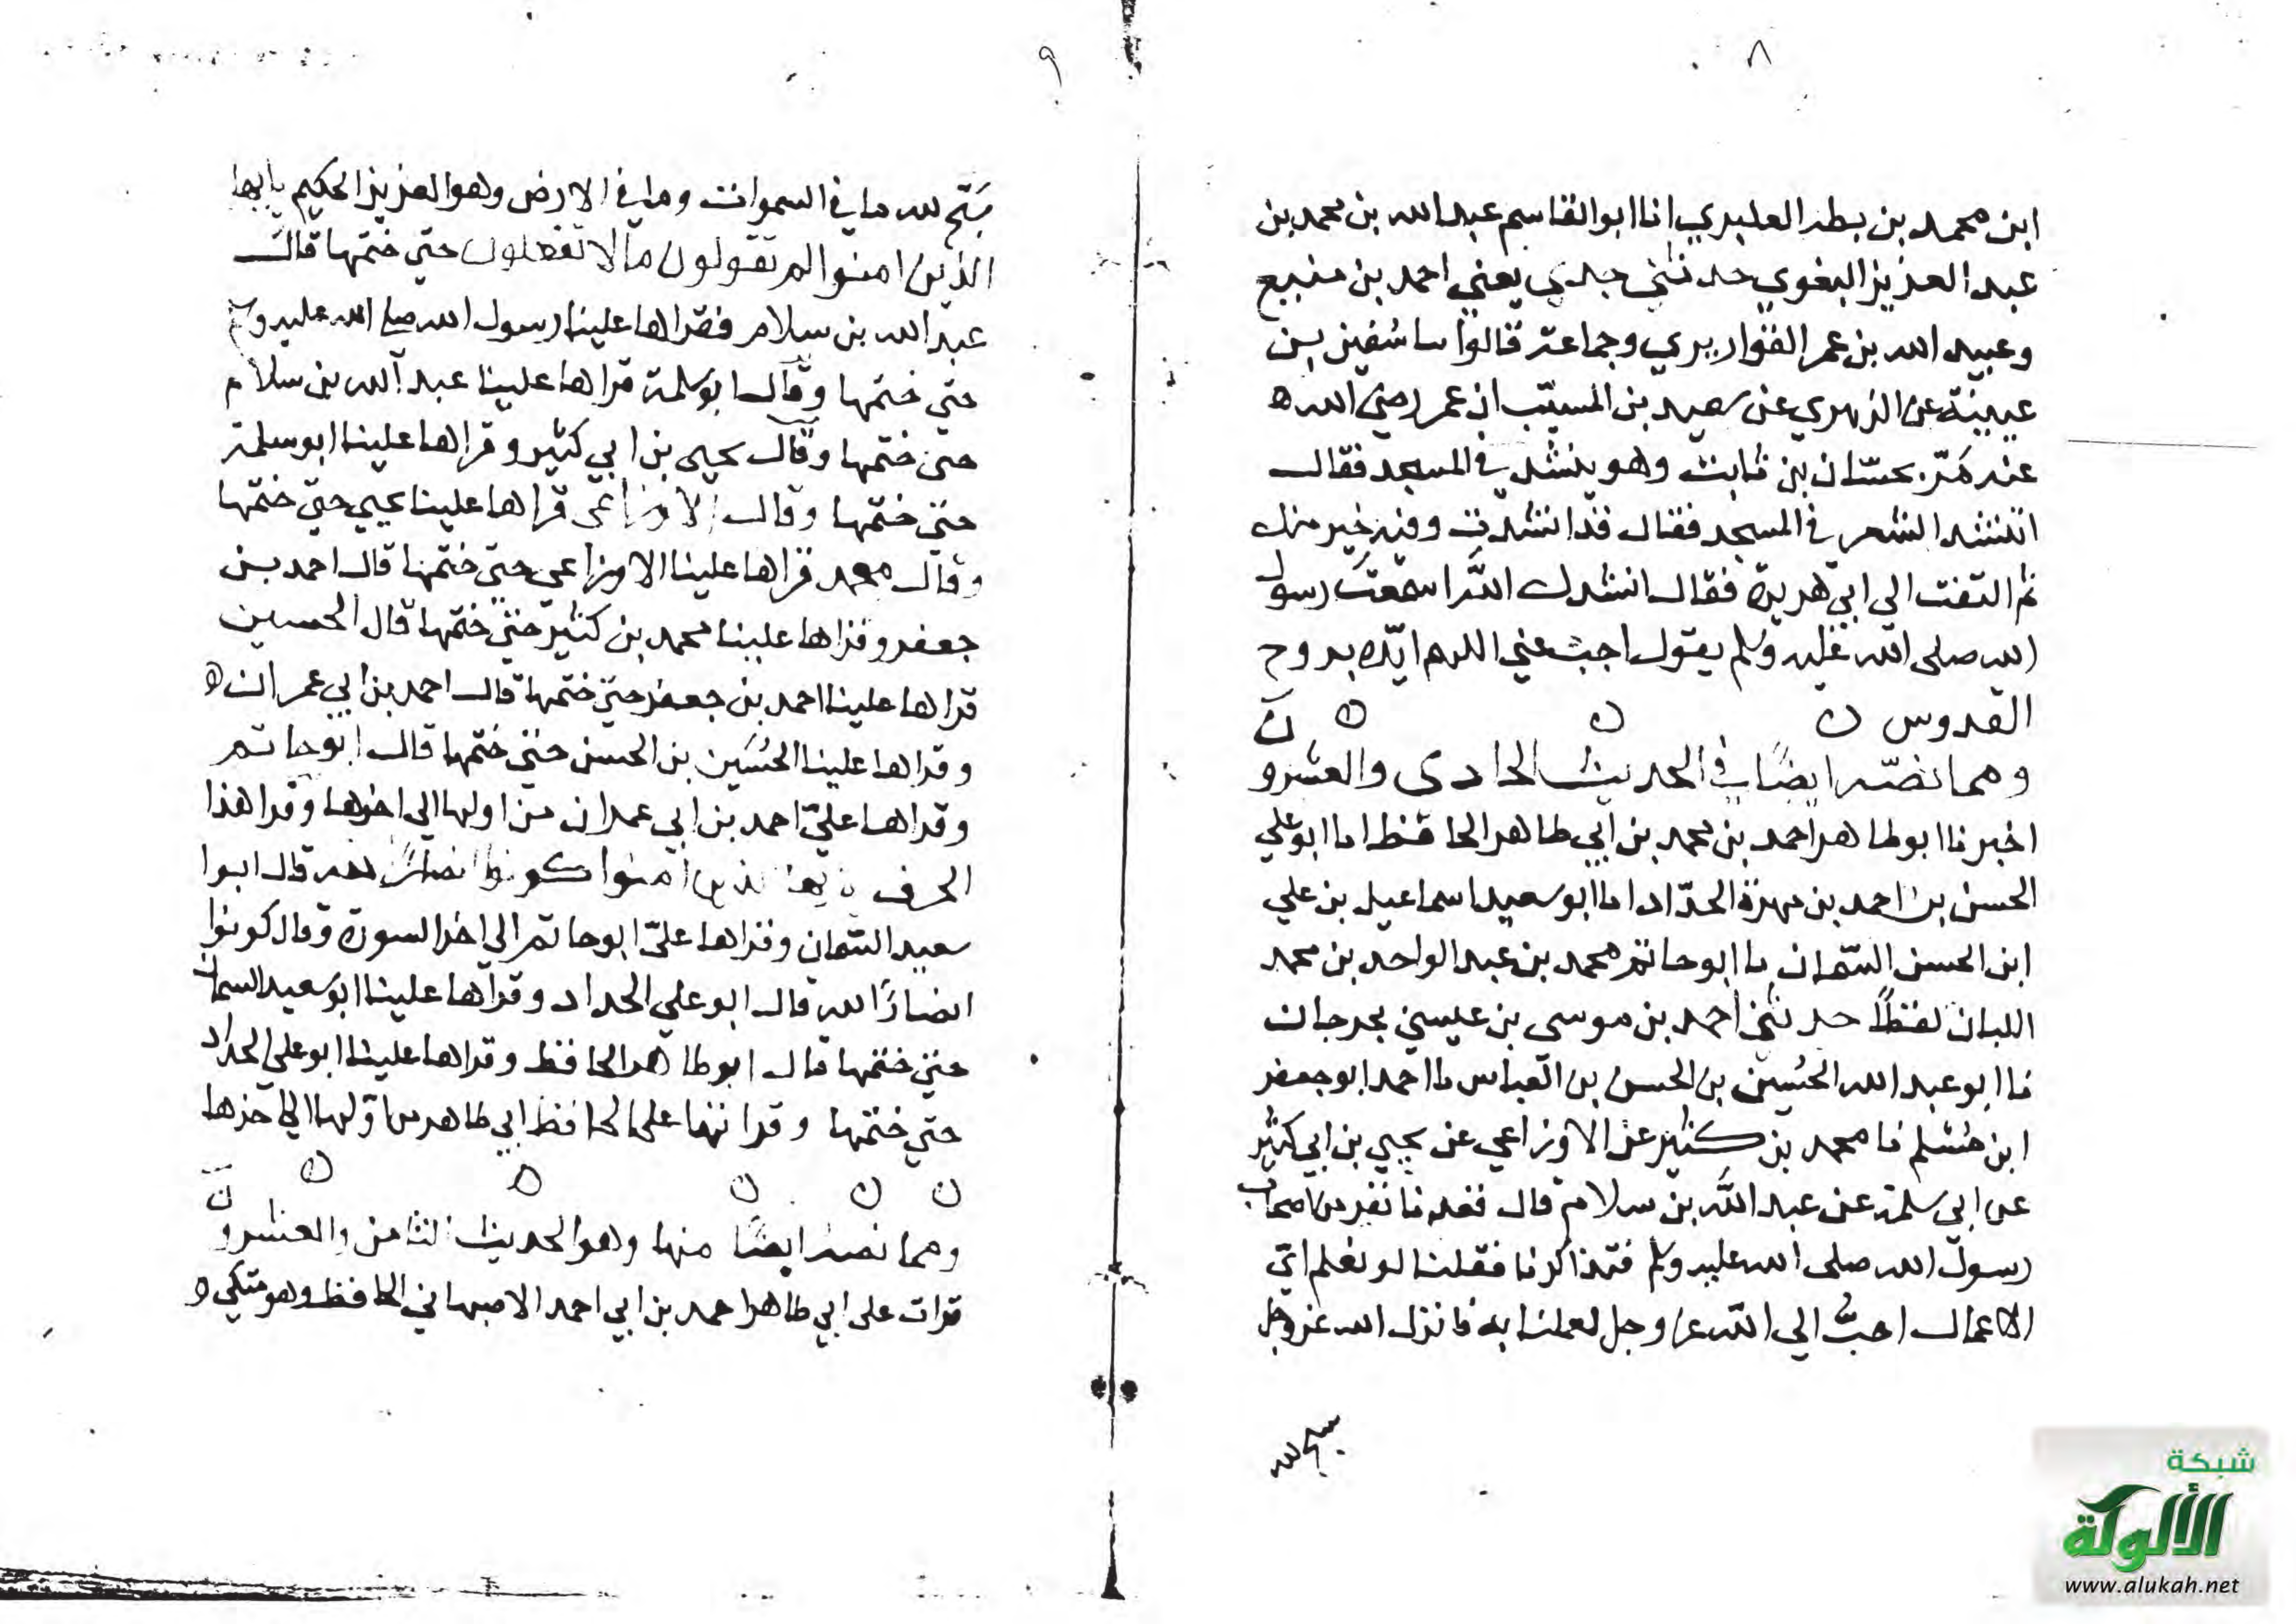 ٨
ابن محمد بن بطه العكبري انا ابو القاسم عبد الله بن محمد بن
عبد العزيز البغوي حدثني جدي يعني احمد بن منيع
وعبيد الله بن عمر القواريري وجماعة قالوا سا سفين بن
عيينة عن الزهري عن سعيد بن المسيّب ان عمر رضي الله ه
عنه مَرّ بحسّان بن ثابت وهو ينشد في المسجد فقال
اتنشد الشعر في المسجد فقال قد انشدت وفيه خير منك
ثم التفت الى ابي هريرة فقال انشدك الله اسمعت رسول
الله صلى الله عليه وسلم يقول اجب عني اللهم ايّده بروح
القدوس ن ن ن ن
ومما نصّه ايضًا في الحديث الحادى والعشرو
اخبرنا ابو طاهر احمد بن محمد بن ابي طاهر الحافظ اما ابو علي
الحسن بن احمد بن مهرة الحدّاد اما ابو سعيد اسماعيل بن علي
ابن الحسن السّمان ما ابو حاتم محمد بن عبد الواحد بن محمد
اللبان لفظًا حدثني احمد بن موسى بن عيسي بجرجان
نا ابو عبد الله الحُسين بن الحسن بن العباس ما احمد ابو جعفر
ابن محمد بن كثير عن الاوزاعي عن يحيى بن ابي كثير
عن ابي سلمة عن عبد الله بن سلام قال قعدنا نفر من اصحاب
رسول الله صلى الله عليه وسلم فتذاكرنا فقلنا لو نعلم ايّ
الاعمال احبُّ الى الله عز وجل لعملنا به فانزل الله عز وجل
سبح لله
٩
سَبّح لله ما في السموات وما في الارض وهو العزيز الحكيم يايها
الذين امنوا لم تقولون ما لا تفعلون حتى ختمها قال
عبد الله بن سلام فقراها علينا رسول الله صلى الله عليه وسلم
حتى ختمها وقال ابو سلمة قراها علينا عبد الله بن سلام
حتى ختمها وقال يحيى بن ابي كثير وقراها علينا ابو سلمة
حتى ختمها وقال الاوزاعى قراها علينا يحيى حتى ختمها
وقال محمد قراها علينا الاوزاعى حتى ختمها قال احمد بن
جعفر وقراها علينا محمد بن كثير حتى ختمها قال الحسين
قراها علينا احمد بن جعفر حتى ختمها قال احمد بن ابي عمران ه
وقراها علينا الحُسَين بن الحسن حتى ختمها قال ابو حاتم
وقراها عليّ احمد بن ابي عمران من اولها الى اخرها وقرا هذا
الحرف يايها الذين امنوا كونوا انصارًا لله قال ابوا
سعيد السّمان وقراها علىّ ابو حاتم الى اخر السورة وقال كونوا
انصارًا لله قال ابو علي الحداد وقراها علينا ابو سعيد السمان
حتى ختمها قال ابو طاهر الحافظ وقراها علينا ابو على الحداد
حتى ختمها وقراتها على الحافظ ابي طاهر من اوّلها الى اخرها
ن ن ن ن ن ن
ومما نصه ايضًا منها وهو الحديث الثامن والعشرون
قرات على ابي طاهر احمد بن ابي احمد الاصبهاني الحافظ وهو متكي ه
شبكة
الألوكة
www.alukah.net